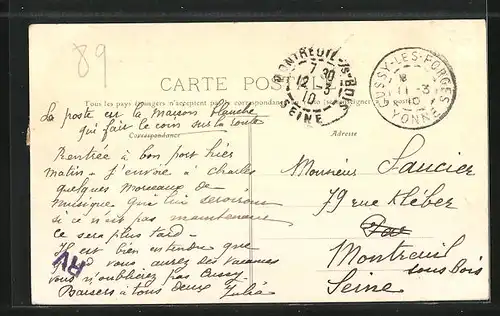 89
MONTREUIL-S-BOIS
7 30
12 - 3
10
SEINE
CUSSY-LES-FORGES
8
11 - 3
10
YONNE
CARTE POSTALE
Tous les pays étrangers n'acceptent pas la correspondance
Correspondance
Adresse
La poste est la maison blanche
qui fait le coin sur la route
Rentrée à bon port hier
matin - J'envoie à charles
quelques morceaux de
musique qui lui serviront
si ce n'est pas maintenant
ce sera plus tard -
Il est bien entendu que
si vous aurez des vacances
vous n'oublierez pas Cussy
Baisers à tous deux Julia
Monsieur Saucier
79 rue Kléber
Montreuil
sous bois
Seine
RV